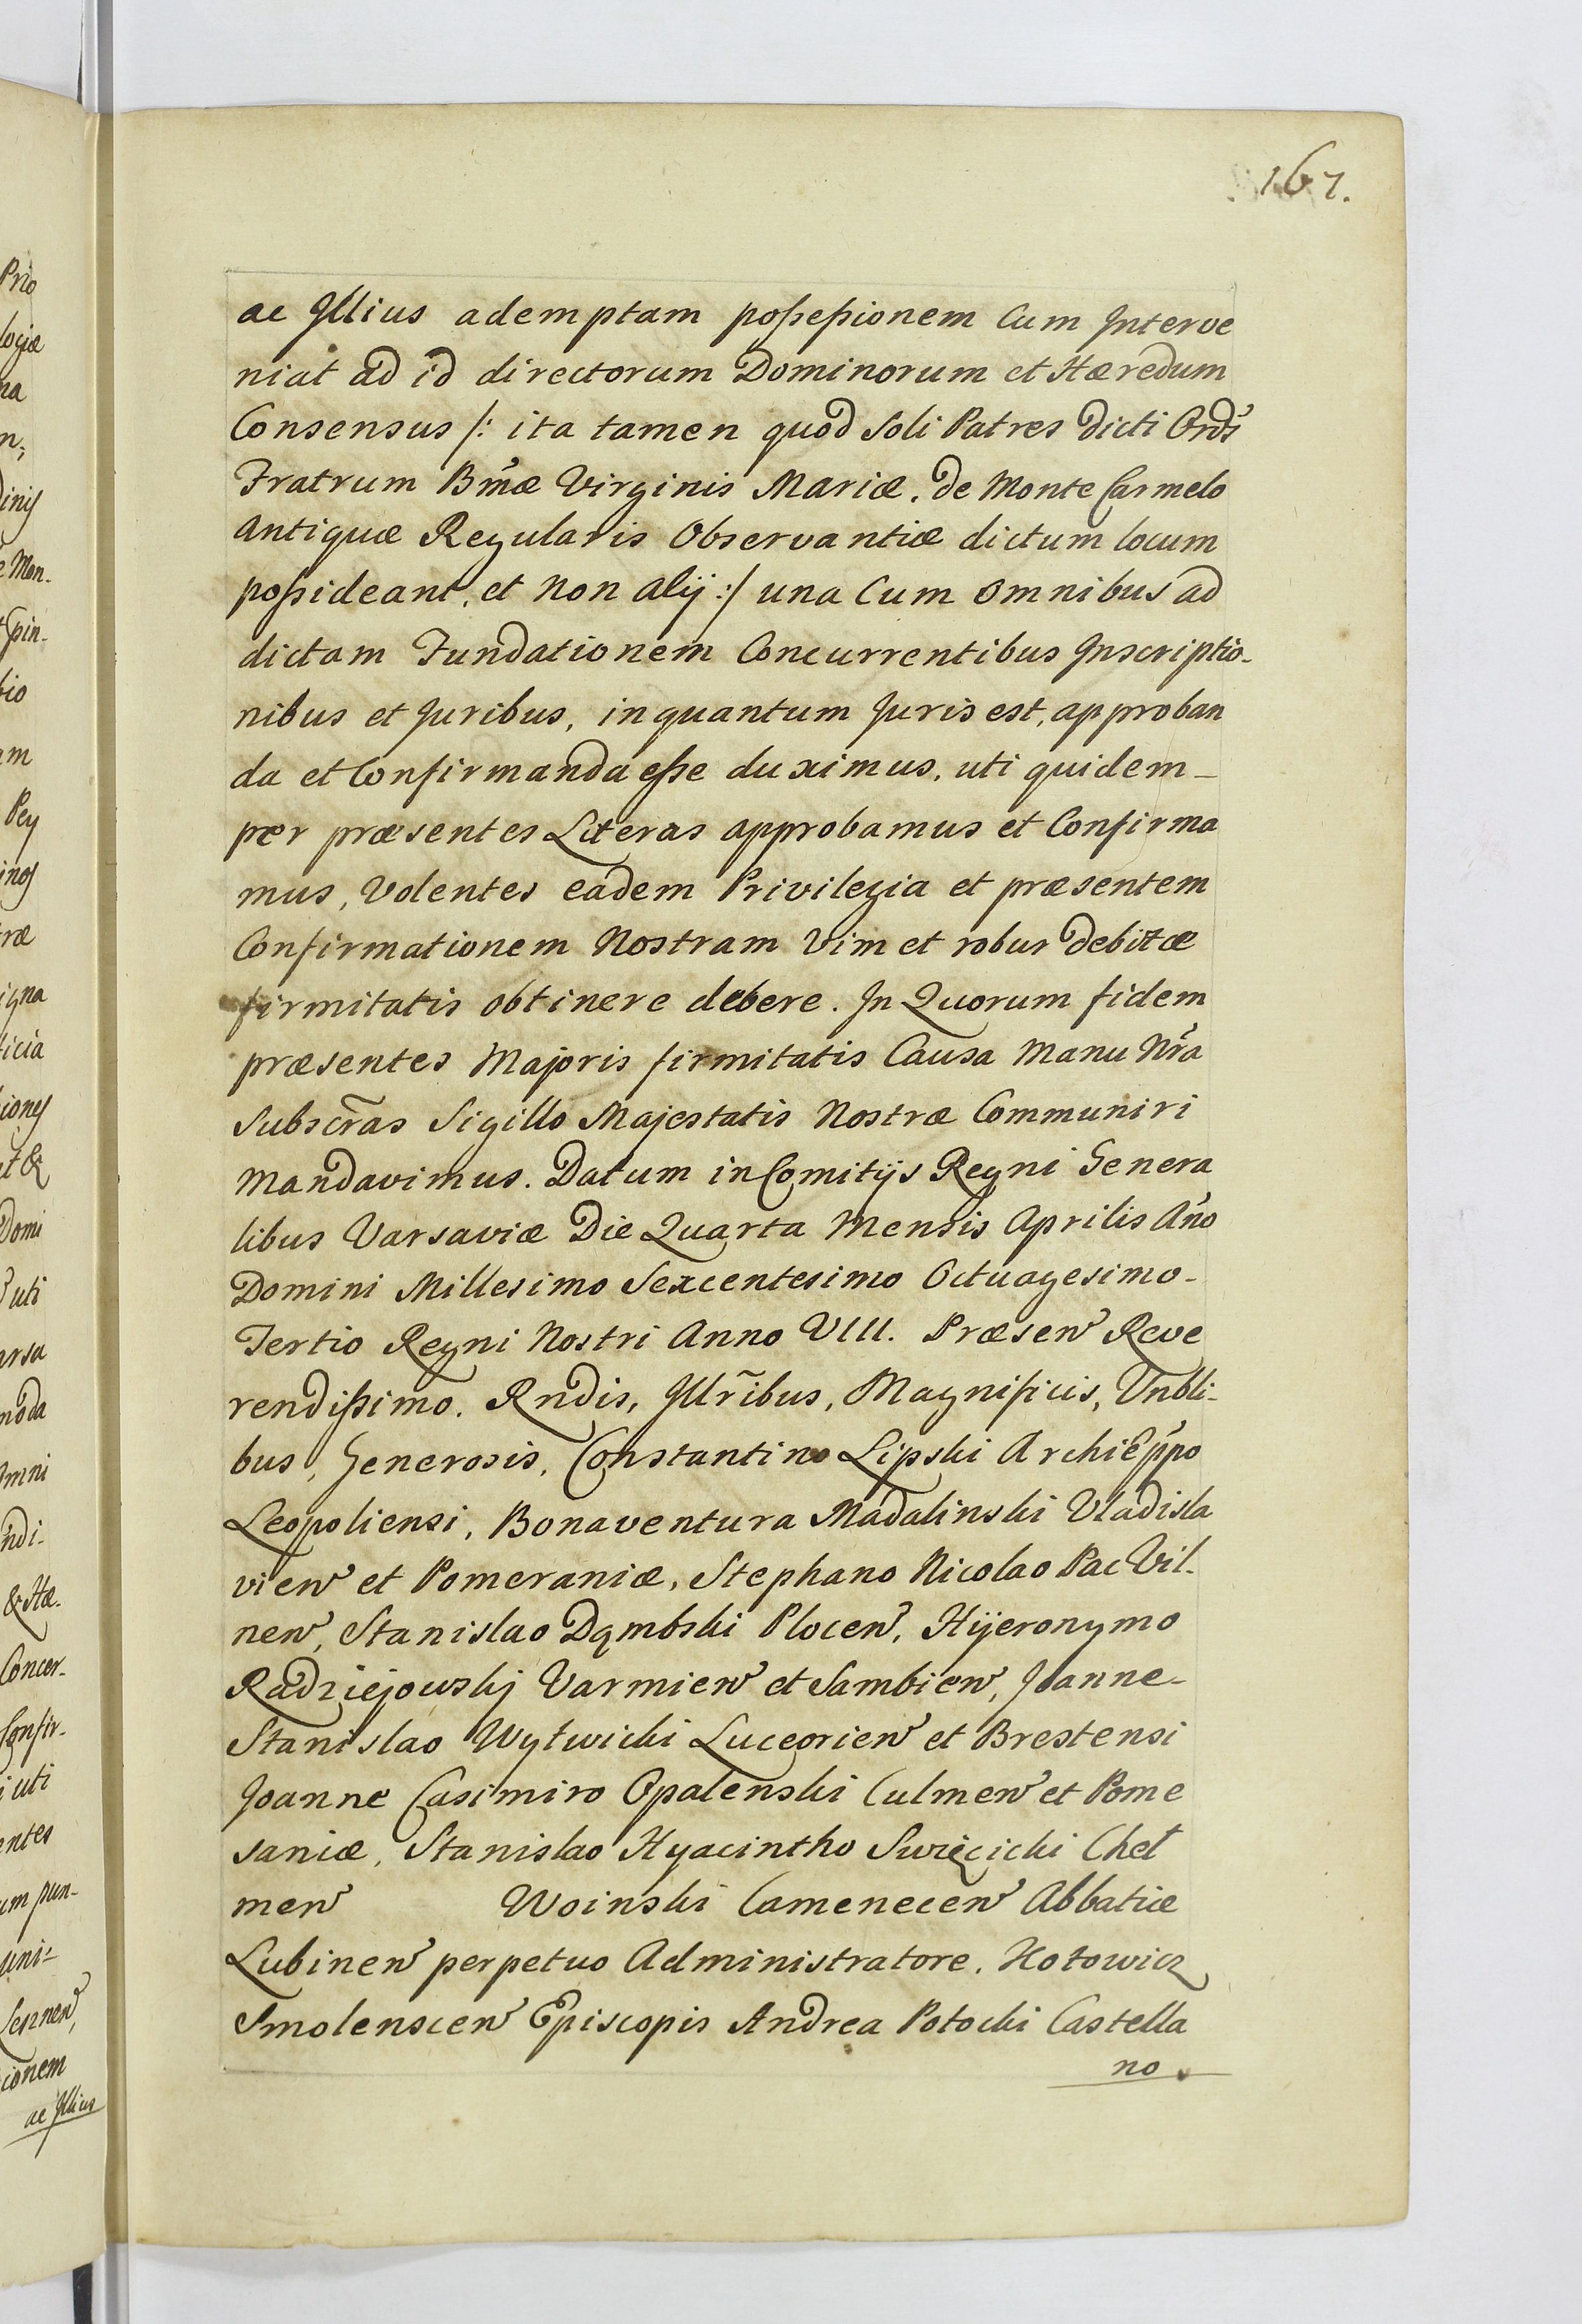 167.
ac Illius ademptam possessionem Cum Interve
niat ad id directorum Dominorum et Hæredum
Consensus /: ita tamen quod Soli Patres dicti Ords̃
Fratrum Bm̃æ Virginis Mariæ, de Monte Carmelo
antiquæ Regularis Observantiæ dictum locum
possideant, et non alij :/ una Cum omnibus ad
dictam Fundationem Concurrentibus Inscriptio-
nibus et Juribus, inquantum Juris est, approban
da et Confirmanda esse duximus, uti quidem-
per præsentes Literas approbamus et Confirma
mus, Volentes eadem Privilegia et præsentem
Confirmationem Nostram Vim et robur debitæ
firmitatis obtinere debere. In Quorum fidem
præsentes Majoris firmitatis Causa Manu Nr̃a
Subscr̃as Sigillo Majestatis Nostræ Communiri
Mandavimus. Datum in Comitijs Regni Genera
libus Varsaviæ Die Quarta Mensis Aprilis Año
Domini Millesimo Sexcentesimo Octuagesimo-
Tertio Regni Nostri Anno VIII. Præsen̄ Reve
rendissimo. Rndis, Illr̃ibus, Magnificis, Gnbli-
bus, Generosis, Constantino Lipski Archiep̃po
Leopoliensi, Bonaventura Madalinski Vladisla
vien̄ et Pomeraniæ, Stephano Nicolao Pac Vil-
nen̄, Stanislao Dąmbski Plocen̄, Hijeronymo
Radziejowskj Varmien̄ et Sambien̄, Joanne-
Stanislao Wytwicki Luceorien̄ et Brestensi
Joanne Casimiro Opalenski Culmen̄ et Pome
saniæ, Stanislao Hyacintho Swięcicki Cheł
men̄ Woinski Camenecen̄ Abbatiæ
Lubinen̄ perpetuo Administratore, Kotowicz
Smolenscen̄ Episcopis Andrea Potocki Castella
no